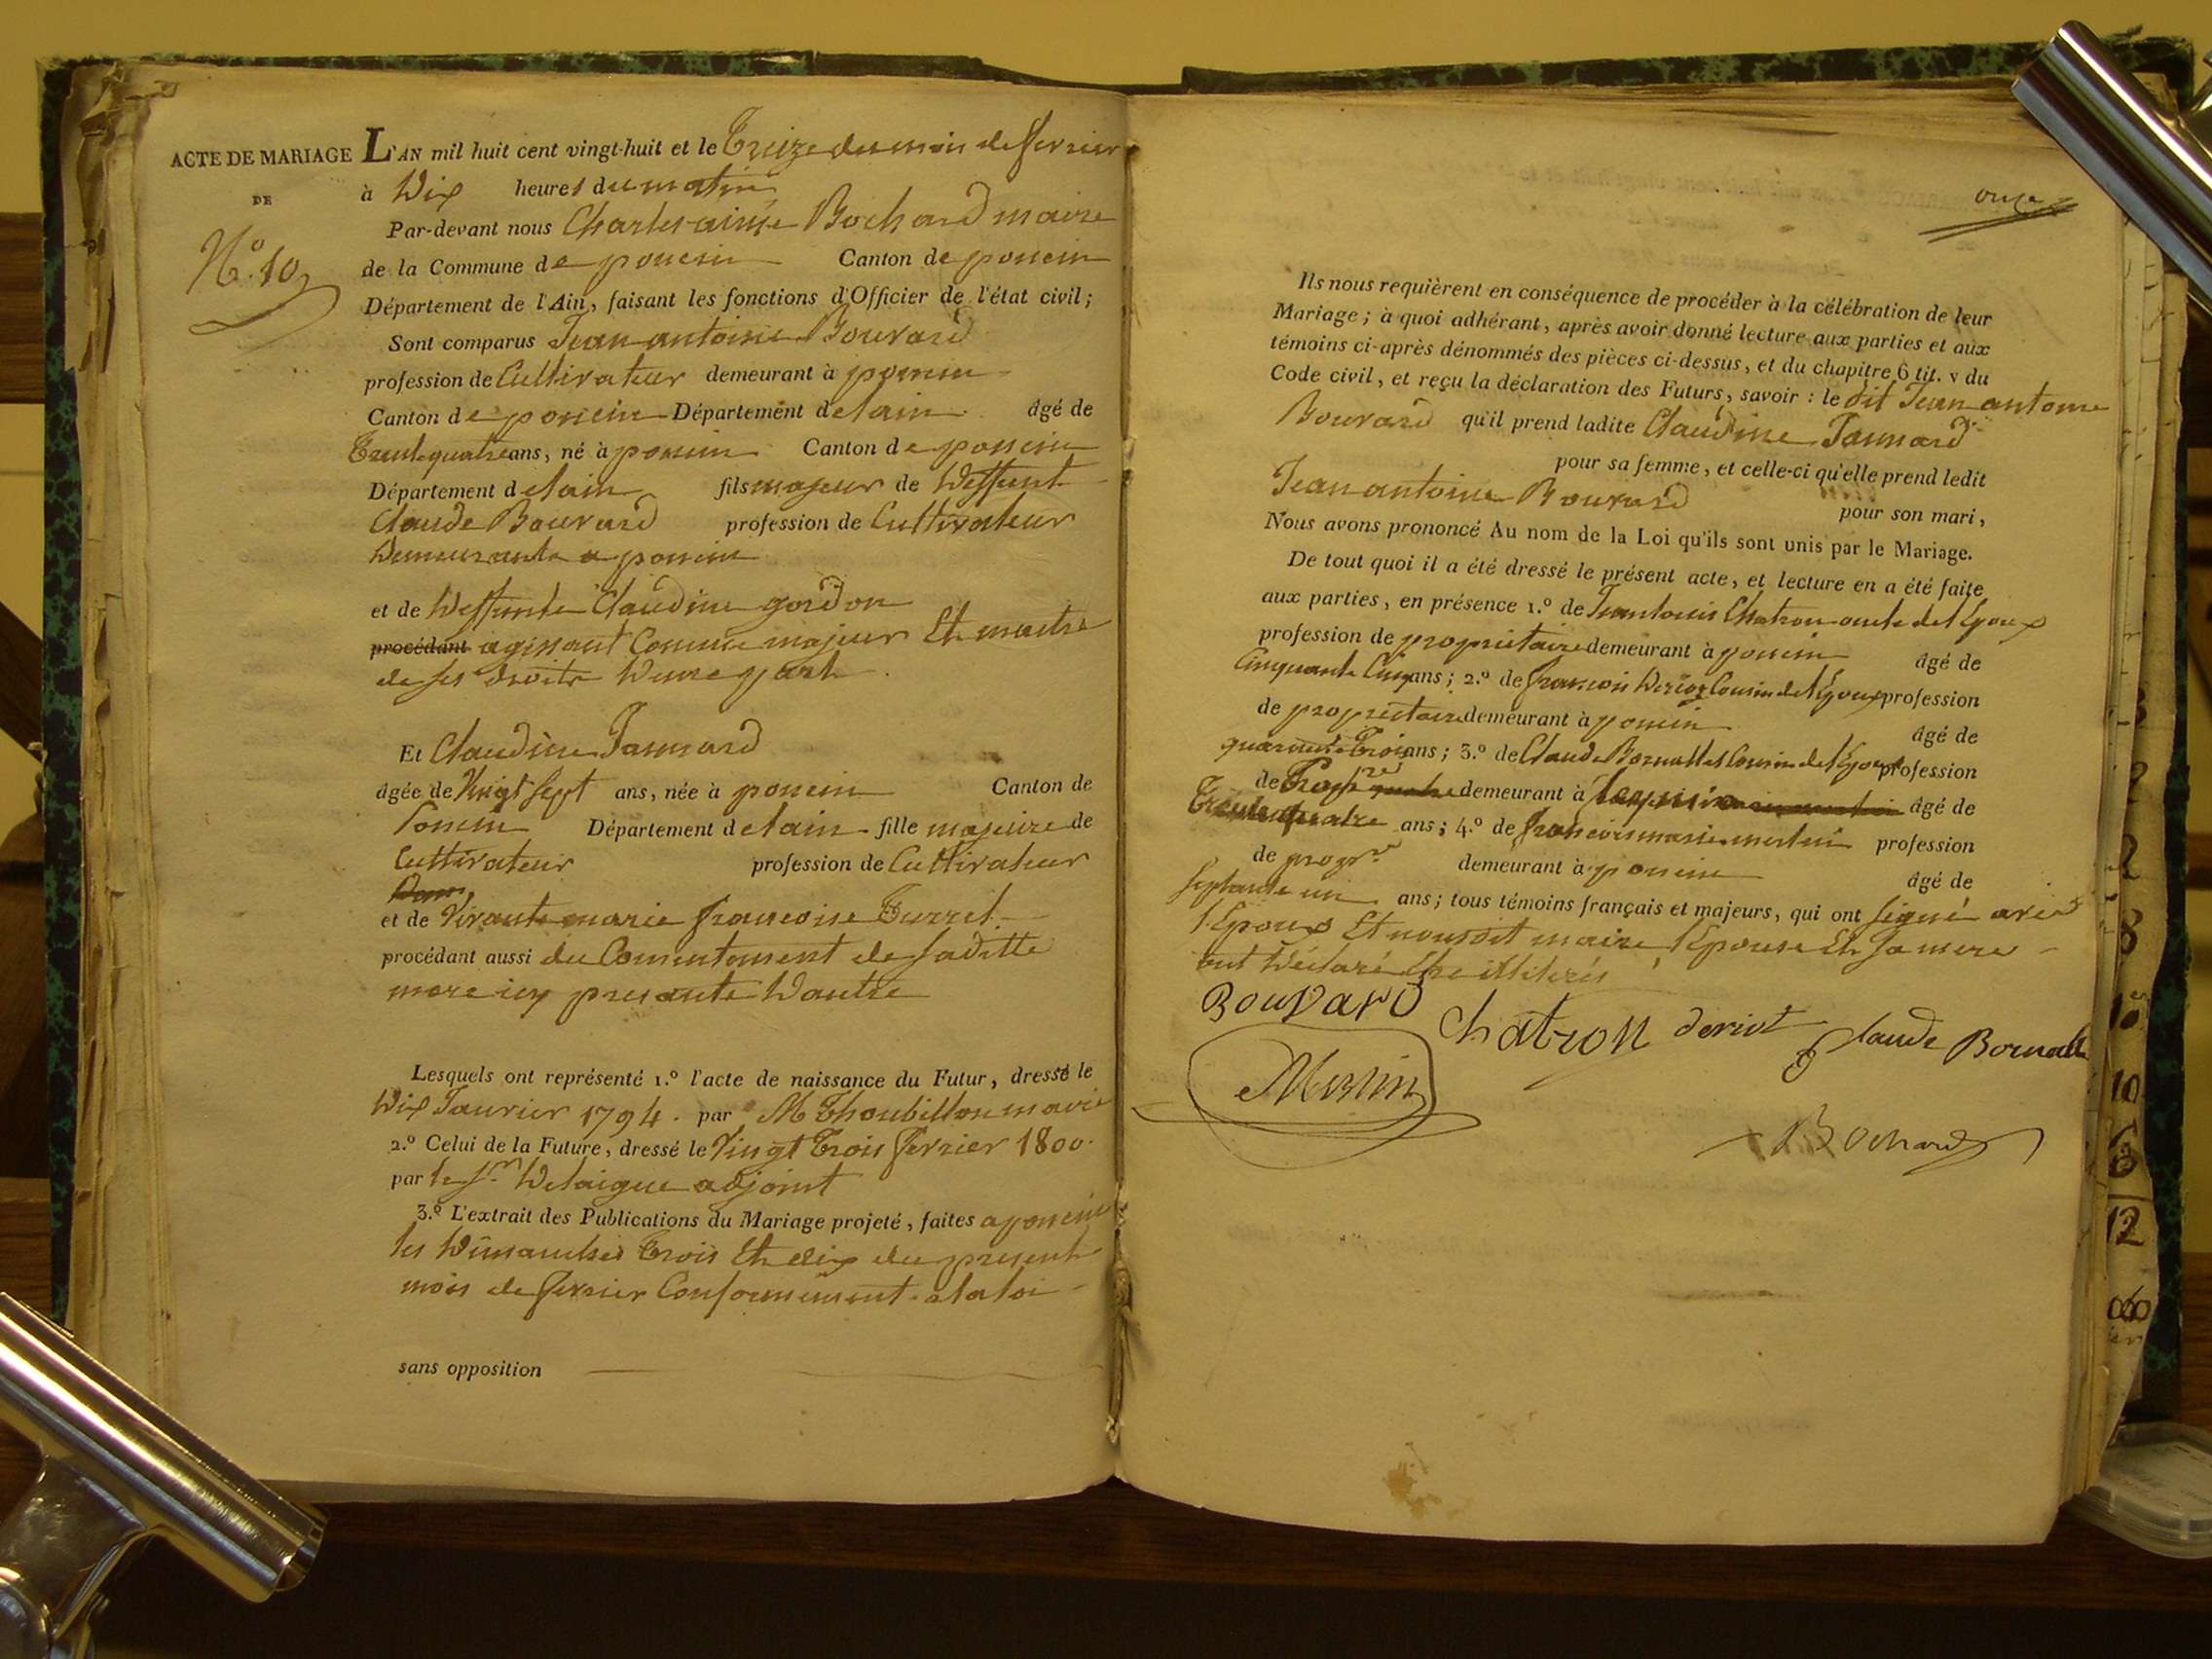 ACTE DE MARIAGE
DE
N.o 10
L'AN mil huit cent vingt-huit et le Treize du mois de fevrier
à Dix heures du matin
Par-devant nous Charles aimée Bochard maire
de la Commune de poncin Canton de poncin
Département de l'Ain, faisant les fonctions d'Officier de l'état civil;
Sont comparus Jean antoine Bouvard
profession de Cultivateur demeurant à poncin
Canton de poncin Département de lain âgé de
Trente quatre ans, né à poncin Canton de poncin
Département de lain fils majeur de Deffunt
Claude Bouvard profession de Cultivateur
Demeurante a poncin
et de Deffunte Claudine gordon
procédant agissant Comme majeur Et maitre
de ses droits Dune part
Et Claudine Jannard
âgée de Vingt sept ans, née à poncin Canton de
Poncin Département de lain fille majeure de
Cultivateur profession de Cultivateur
et de Vivante marie francoise Turrel
procédant aussi du Consentement de saditte
mere icy presante Dautre
Lesquels ont représenté 1.o l'acte de naissance du Futur, dressé le
Dix Janvier 1794. par M Thoubillon maire
2.o Celui de la Future, dressé le Vingt Trois fevrier 1800.
par le Sr. Delaigue adjoint
3.o L'extrait des Publications du Mariage projeté, faites a poncin
les Dimanches Trois Et dix du present
mois de fevrier Conformement a la loi
sans opposition
onze
Ils nous requièrent en conséquence de procéder à la célébration de leur
Mariage; à quoi adhérant, après avoir donné lecture aux parties et aux
témoins ci-après dénommés des pièces ci-dessus, et du chapitre 6 tit. v du
Code civil, et reçu la déclaration des Futurs, savoir: le dit Jean antoine
Bouvard qu'il prend ladite Claudine Jannard
pour sa femme, et celle-ci qu'elle prend ledit
Jean antoine Bouvard pour son mari,
Nous avons prononcé Au nom de la Loi qu'ils sont unis par le Mariage.
De tout quoi il a été dressé le présent acte, et lecture en a été faite
aux parties, en présence 1.o de Jean louis Chatron oncle de l'Epoux
profession de propriétaire demeurant à poncin âgé de
Cinquante Cinq ans; 2.o de francois Deriot Cousin de l'Epoux profession
de propriétaire demeurant à poncin âgé de
quarante Trois ans; 3.o de Claude Bornatte Cousin de l'Epoux profession
de demeurant à âgé de
Trente quatre ans; 4.o de francois marie merlin profession
de propr.re demeurant à poncin âgé de
septante un ans; tous témoins français et majeurs, qui ont signé avec
l'Epoux Et nousdit maire, l'Epouse Et sa mere
ont Déclaré Etre illiterés
Bouvard Chatron deriot Claude Bornatte
Merlin
Bochard